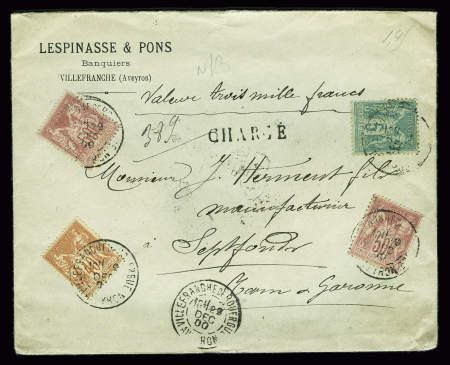 LESPINASSE & PONS
Banquiers
VILLEFRANCHE (Aveyron)
N/3
Valeur trois mille francs
389
CHARGÉ
Monsieur J. Herment fils
manufacturier
à Septfonds
Tarn & Garonne
VILLEFRANCHE DE ROUERGUE
DEC
00